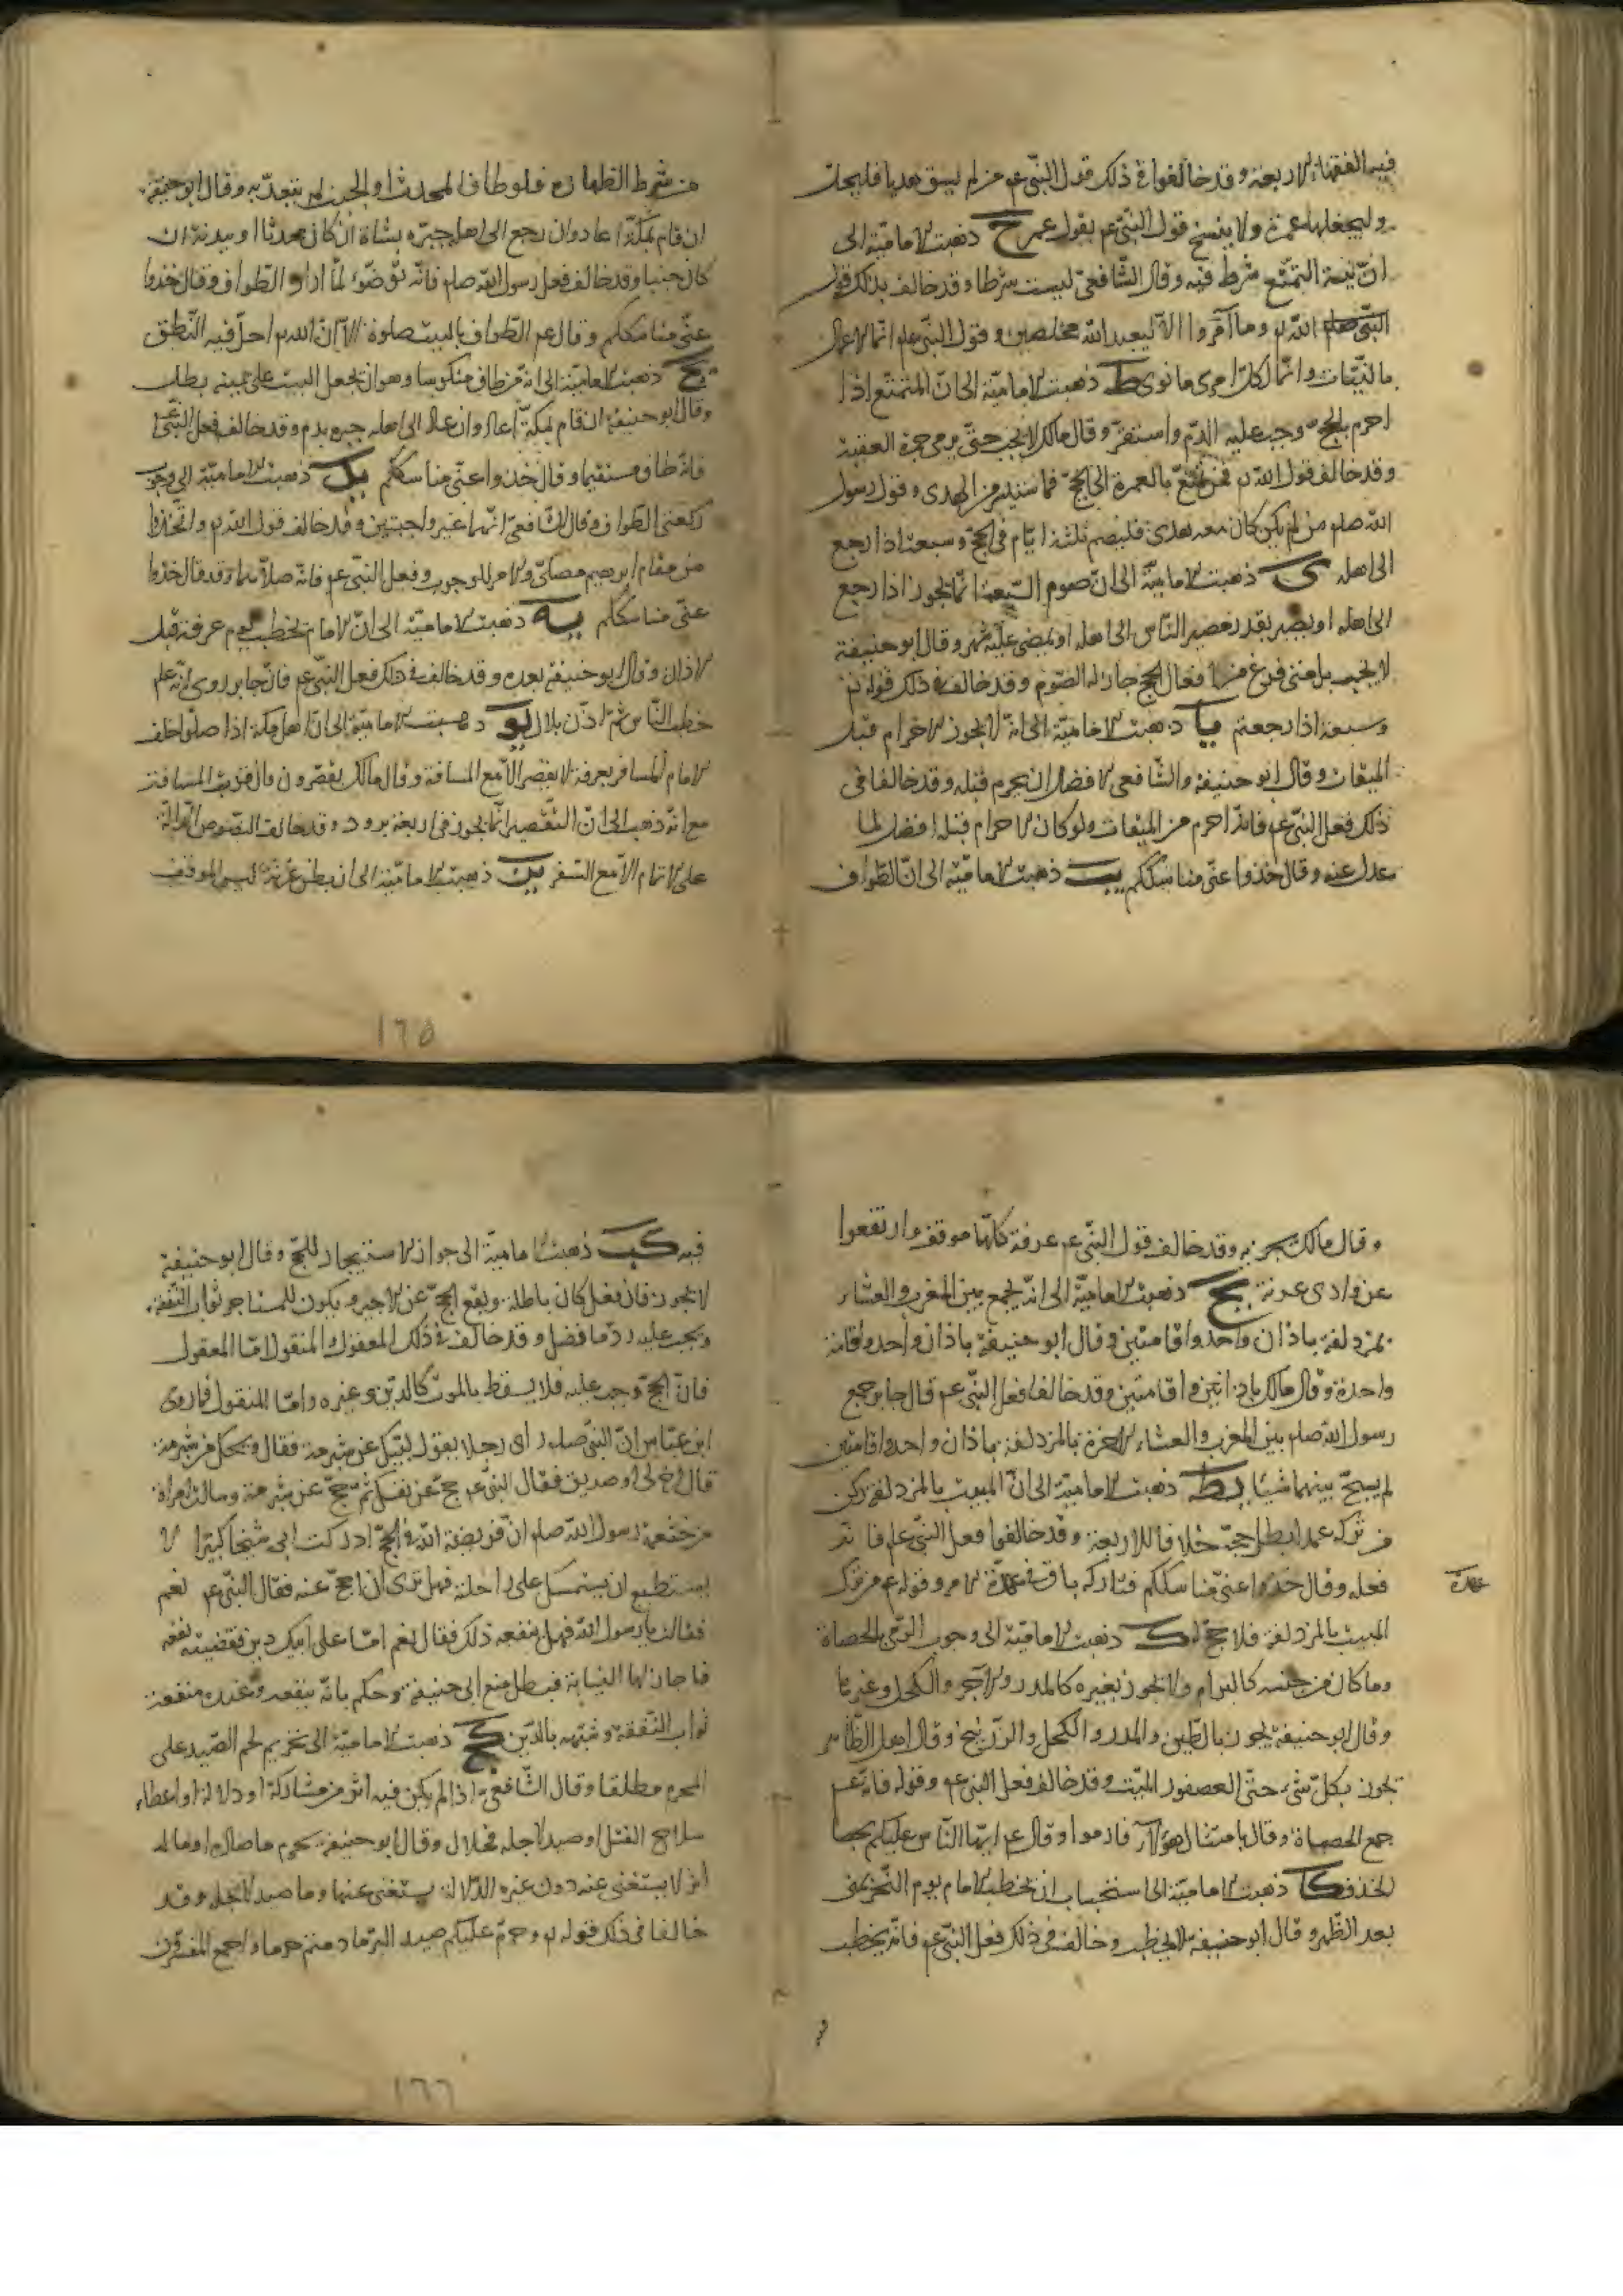 فيه الفقهاء الاربعة وقد خالفوا في ذلك قول النبي عم من لم يسق هديا فليحل
وليجعلها عمرة ولا ينسخ قول النبي عم بقول عمر ح ذهبت الامامية الى
ان نية التمتع شرط فيه وقال الشافعي ليست شرطا وقد خالف بذلك قول
الله تع وما امروا الا ليعبدوا الله مخلصين وقول النبي عم انما الاعمال
بالنيات وانما لكل امرئ ما نوى ط ذهبت الامامية الى ان المتمتع اذا
احرم بالحج وجب عليه الدم واستقر وقال مالك لا يجب حتى يرمي جمرة العقبة
وقد خالف قول الله تع فمن تمتع بالعمرة الى الحج فما استيسر من الهدى وقول رسول
الله صلم من لم يكن كان معه هدى فليصم ثلثة ايام في الحج وسبعة اذا رجع
الى اهله ى ذهبت الامامية الى ان صوم السبعة انما يجوز اذا رجع
الى اهله او يصبر بقدر مصير الناس الى اهله او يمضى عليه شهر وقال ابو حنيفة
لا يجب بل متى فرغ من افعال الحج جاز له الصوم وقد خالف في ذلك قوله تع
وسبعة اذا رجعتم يا ذهبت الامامية الى انه لا يجوز الاحرام قبل
الميقات وقال ابو حنيفة والشافعي الافضل ان يحرم قبله وقد خالفا في
ذلك فعل النبي عم فانه احرم من الميقات ولو كان الاحرام قبله افضل لما
عدل عنه وقال خذوا عني مناسككم يب ذهبت الامامية الى ان الطواف
من شرط الطهارة فلو طاف المحدث او الجنب لم يتعد به وقال ابو حنيفة
ان قام بمكة اعاد وان رجع الى اهله جبره بشاة ان كان محدثا او ببدنة ان
كان جنبا وقد خالف فعل رسول الله صلم فانه توضوء لما اراد الطواف وقال خذوا
عني مناسككم وقال عم الطواف بالبيت صلوة الا ان الله تع احل فيه النطق
يج ذهبت الامامية الى انه من طاف منكوسا وهو ان يجعل البيت على يمينه بطل
وقال ابو حنيفة ان قام بمكة اعاد وان عاد الى اهله جبره بدم وقد خالف فعل النبي عم
فانه طاف مستقيما وقال خذوا عني مناسككم يد ذهبت الامامية الى وجوب
ركعتى الطواف وقال الشافعي انهما غير واجبتين وقد خالف قول الله تع واتخذوا
من مقام ابرهيم مصلى والامر للوجوب وفعل النبي عم فانه صلاهما وقد قال خذوا
عني مناسككم يه ذهبت الامامية الى ان الامام يخطب يوم عرفة قبل
الاذان وقال ابو حنيفة بعده وقد خالف في ذلك فعل النبي عم فان جابر روى انه عم
خطب الناس ثم اذن بلال يو ذهبت الامامية الى ان اهل مكة اذا صلوا خلف
الامام المسافر بعرفة لا يقصر الا مع المسافة وقال مالك يقصرون وان قربت المسافة
مع انه ذهب الى ان التقصير انما يجوز في اربعة برود وقد خالف النصوص الدالة
على الاتمام الا مع السفر يز ذهبت الامامية الى ان بطن عرنة ليس الموقف
١٦٥
وقال مالك يجزيه وقد خالف قول النبي عم عرفة كلها موقف وارتفعوا
عن وادى عرنة يح ذهبت الامامية الى انه يجمع بين المغرب والعشاء
بمزدلفة باذان واحد واقامتين وقال ابو حنيفة باذان واحد واقامة
واحدة وقال مالك باذانين واقامتين وقد خالفا فعل النبي عم قال جابر جمع
رسول الله صلم بين المغرب والعشاء الاخرة بالمزدلفة باذان واحد واقامتين
لم يسبح بينهما شيئا يط ذهبت الامامية الى ان المبيت بالمزدلفة ركن
من تركه عمدا بطل حجه خلافا للاربعة وقد خالفوا فعل النبي عم فانه
فعله وقال خذوا عني مناسككم فتاركه باق في عهدة الامر وقوله عم من ترك
عهدة
المبيت بالمزدلفة فلا حج له ك ذهبت الامامية الى وجوب الرمى بالحصاة
وما كان من جنسه كالبرام ولا يجوز بغيره كالمدر والاجر والكحل وغيرها
وقال ابو حنيفة يجوز بالطين والمدر والكحل والزرنيخ وقال اهل الظاهر
يجوز بكل شئ حتى العصفور الميت وقد خالف فعل النبي عم وقوله فانه عم
جمع الحصاة وقال بامثال هؤلاء فارموا وقال عم ايها الناس عليكم بحصا
الخذف كا ذهبت الامامية الى استحباب ان يخطب الامام يوم النحر بمنى
بعد الظهر وقال ابو حنيفة لا يخطب وخالف في ذلك فعل النبي عم فانه خطب
فيه كب ذهبت الامامية الى جواز الاستيجار للحج وقال ابو حنيفة
لا يجوز فان فعل كان باطلة ويقع الحج عن الاجير ويكون للمستاجر ثواب النفقة
ويجب عليه رد ما فضل وقد خالف في ذلك المعقول والمنقول اما المعقول
فان الحج وجب عليه فلا يسقط بالموت كالدين وغيره واما المنقول فما روى
ابن عباس ان النبي صلم راى رجلا يقول لبيك عن شبرمة فقال ويحك من شبرمة
قال اخ لى او صديق فقال النبي عم حج عن نفسك ثم حج عن شبرمة وسالت امراة
من خثعم رسول الله صلم ان فريضة الله في الحج ادركت ابى شيخا كبيرا لا
يستطيع ان يستمسك على راحلة فهل ترى ان احج عنه فقال النبي عم نعم
فقالت يا رسول الله فهل ينفعه ذلك فقال نعم اما على ابيك دين فقضيته نفعه
فاجاز لها النيابة فبطل منع ابى حنيفة وحكم بانه ينفعه وعنده منفعة
ثواب النفقة وشبهه بالدين كج ذهبت الامامية الى تحريم لحم الصيد على
المحرم مطلقا وقال الشافعي اذا لم يكن فيه اثر من مشاركة او دلالة او اعطاء
سلاح القتل او صيد لاجله فحلال وقال ابو حنيفة يحرم ما صاده او ماله
اثر لا يستغنى عنه دون غيره الدلالة يستغنى عنها وما صيد لاجله وقد
خالفا في ذلك قوله تع وحرم عليكم صيد البر ما دمتم حرما واجمع المفسرون
١٦٦